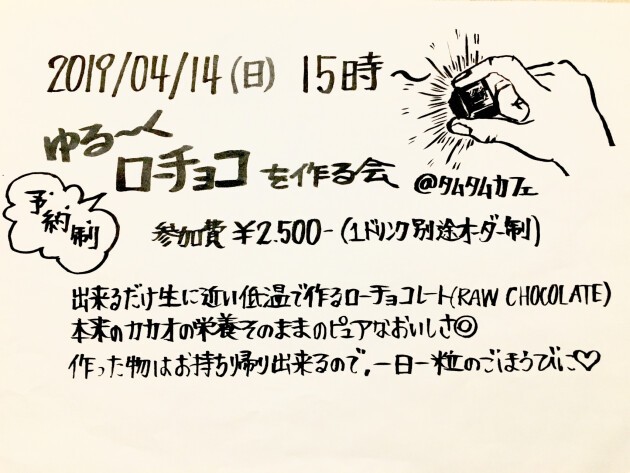 2019/04/14(日) 15時〜
ゆる〜く
ローチョコを作る会 @タムタムカフェ
予約制
参加費 ¥2.500-(1ドリンク別途オーダー制)
出来るだけ生に近い低温で作るローチョコレート(RAW CHOCOLATE)
本来のカカオの栄養そのままのピュアなおいしさ◎
作った物はお持ち帰り出来るので、一日一粒のごほうびに♡